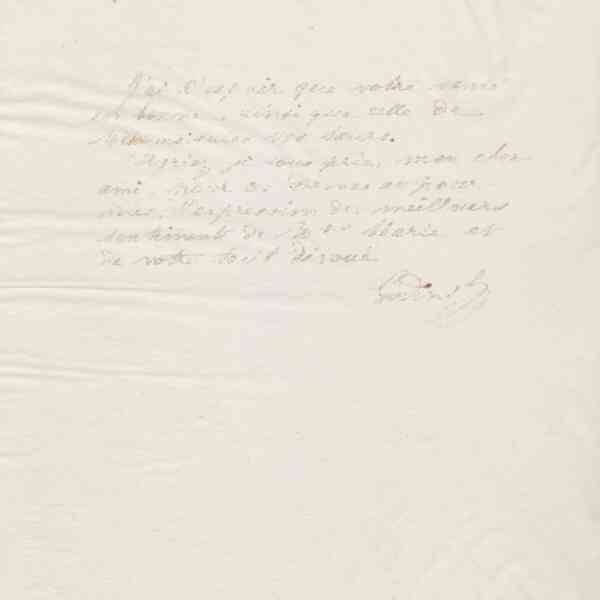 J'ai l'espoir que votre santé
est bonne, ainsi que celle de
Mesdemoiselles vos sœurs.
Veuillez, je vous prie, mon cher
ami, pour ces Dames et pour
vous, l'expression des meilleurs
sentiments de Mme Marie et
de votre tout dévoué
Godin